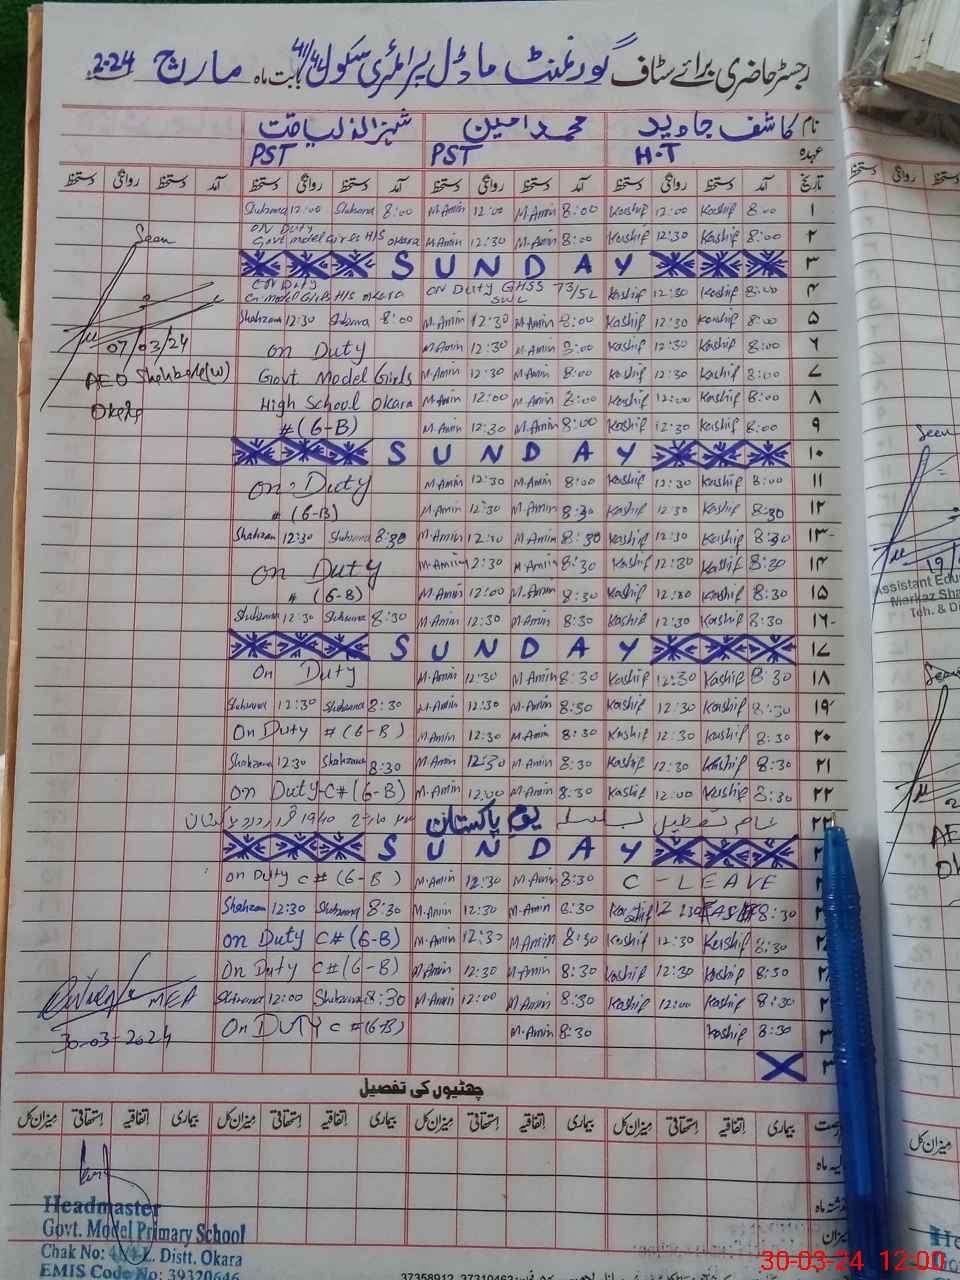 رجسٹر حاضری برائے سٹاف گورنمنٹ ماڈل پرائمری سکول بابت ماہ مارچ 2024
نام کاشف جاوید محمد امین
عہدہ H.T PST PST
تاریخ آمد دستخط روانگی دستخط آمد دستخط روانگی دستخط آمد دستخط روانگی دستخط آمد دستخط روانگی دستخط
۱ 8:00 Kashif 12:00 Kashif 8:00 M.Amin 12:00 M.Amin 8:00 12:00
۲ 8:00 Kashif 12:30 Kashif 8:00 M.Amin 12:30 M.Amin ON Duty Govt model girls H/S okara
Seen
۳ SUNDAY
۴ 8:00 Kashif 12:30 Kashif ON Duty GHSS 73/5L SWL ON Duty G. Model Girls H/S okara
۵ 8:00 Kashif 12:30 Kashif 8:00 M.Amin 12:30 M.Amin 8:00 12:30
07/03/24
۶ 8:00 Kashif 12:30 Kashif 8:00 M.Amin 12:30 M.Amin on Duty
AEO (W)
۷ 8:00 Kashif 12:30 Kashif 8:00 M.Amin 12:30 M.Amin Govt Model Girls
Okara
۸ 8:00 Kashif 12:00 Kashif 8:00 M.Amin 12:00 M.Amin High School Okara
۹ 8:00 Kashif 12:30 Kashif 8:00 M.Amin 12:30 M.Amin #(6-B)
۱۰ SUNDAY
۱۱ 8:00 Kashif 12:30 Kashif 8:00 M.Amin 12:30 M.Amin On Duty
۱۲ 8:30 Kashif 12:30 Kashif 8:30 M.Amin 12:30 M.Amin #(6-B)
۱۳ 8:30 Kashif 12:30 Kashif 8:30 M.Amin M.Amin 8:30 12:30
۱۴ 8:30 Kashif 12:30 Kashif 8:30 M.Amin 12:30 M.Amin on Duty
۱۵ 8:30 Kashif Kashif 8:30 M.Amin 12:00 M.Amin #(6-B)
۱۶ 8:30 Kashif 12:30 Kashif 8:30 M.Amin 12:30 M.Amin 8:30 12:30
۱۷ SUNDAY
۱۸ 8:30 Kashif 12:30 Kashif 8:30 M.Amin 12:30 M.Amin On Duty
۱۹ 8:30 Kashif 12:30 Kashif 8:30 M.Amin 12:30 M.Amin 8:30 12:30
۲۰ 8:30 Kashif 12:30 Kashif 8:30 M.Amin 12:30 M.Amin On Duty #(6-B)
۲۱ 8:30 Kashif 12:30 Kashif 8:30 M.Amin 12:30 M.Amin 8:30 Shahzana 12:30 Shahzana
۲۲ 8:30 Kashif 12:00 Kashif 8:30 M.Amin 12:00 M.Amin On Duty C#(6-B)
۲۳ عام تعطیل یوم پاکستان 1940
SUNDAY
C-LEAVE 8:30 M.Amin 12:30 M.Amin on Duty C#(6-B)
8:30 12:30 8:30 M.Amin 12:30 M.Amin 8:30 12:30
8:30 Kashif 12:30 Kashif 8:30 M.Amin 12:30 M.Amin on Duty C#(6-B)
8:30 Kashif 12:30 Kashif 8:30 M.Amin 12:30 M.Amin On Duty C#(6-B)
8:30 Kashif 12:00 Kashif 8:30 M.Amin 12:00 M.Amin 8:30 12:00
MEA
8:30 Kashif 8:30 M.Amin On DUTY C#(6-B)
30-03-2024
چھٹیوں کی تفصیل
بیماری اتفاقیہ استحقاقی میزان کل بیماری اتفاقیہ استحقاقی میزان کل بیماری اتفاقیہ استحقاقی میزان کل بیماری اتفاقیہ استحقاقی میزان کل
Headmaster
Govt. Model Primary School
Chak No: 4/4-L. Distt. Okara
EMIS Code No: 39320646
37358912, 37310463
Seen
Assistant Edu
Markaz Sha
Teh. & Di
Seen
میزان کل
30-03-24 12:00